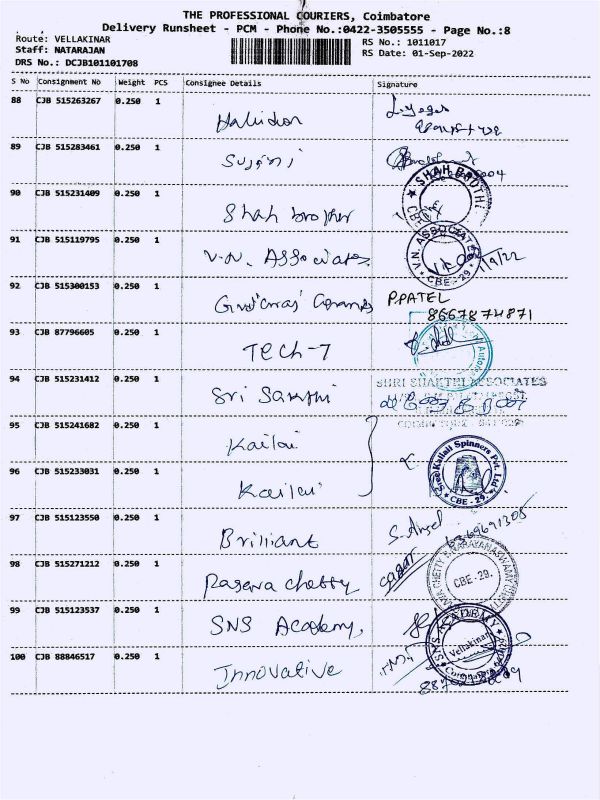 THE PROFESSIONAL COURIERS, Coimbatore
Delivery Runsheet - PCM - Phone No.:0422-3505555 - Page No.:8
Route: VELLAKINAR
Staff: NATARAJAN
DRS No.: DCJB101101708
RS No.: 1011017
RS Date: 01-Sep-2022
S No Consignment No Weight PCS Consignee Details Signature
88 CJB 515263267 0.250 1
89 CJB 515283461 0.250 1 Sujini
90 CJB 515231409 0.250 1 Shah brother
SHAH
91 CJB 515119795 0.250 1 V.N. Associates
V.N. ASSOCIATES CBE-29 1/9/22
92 CJB 515300153 0.250 1 P.PATEL
8667874871
93 CJB 87796605 0.250 1 TECH-7
94 CJB 515231412 0.250 1 Sri Sakthi
SHRI SHAKTHI ASSOCIATES
95 CJB 515241682 0.250 1 Kailai
96 CJB 515233031 0.250 1 Kailai
Sree Kailali Spinners Pvt. Ltd CBE-29.
97 CJB 515123550 0.250 1 Brilliant
98 CJB 515271212 0.250 1 chetty
CHETTY B.NARAYANASWAMY CHETTY CBE-29.
99 CJB 515123537 0.250 1 SNS Academy,
SNS ACADEMY Vellakinar
100 CJB 88846517 0.250 1 Innovative